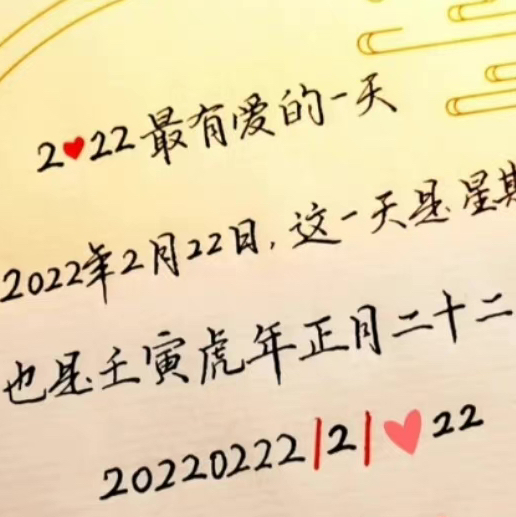 2❤22最有爱的一天
2022年2月22日,这一天是星期
也是壬寅虎年正月二十二
20220222|2|❤22